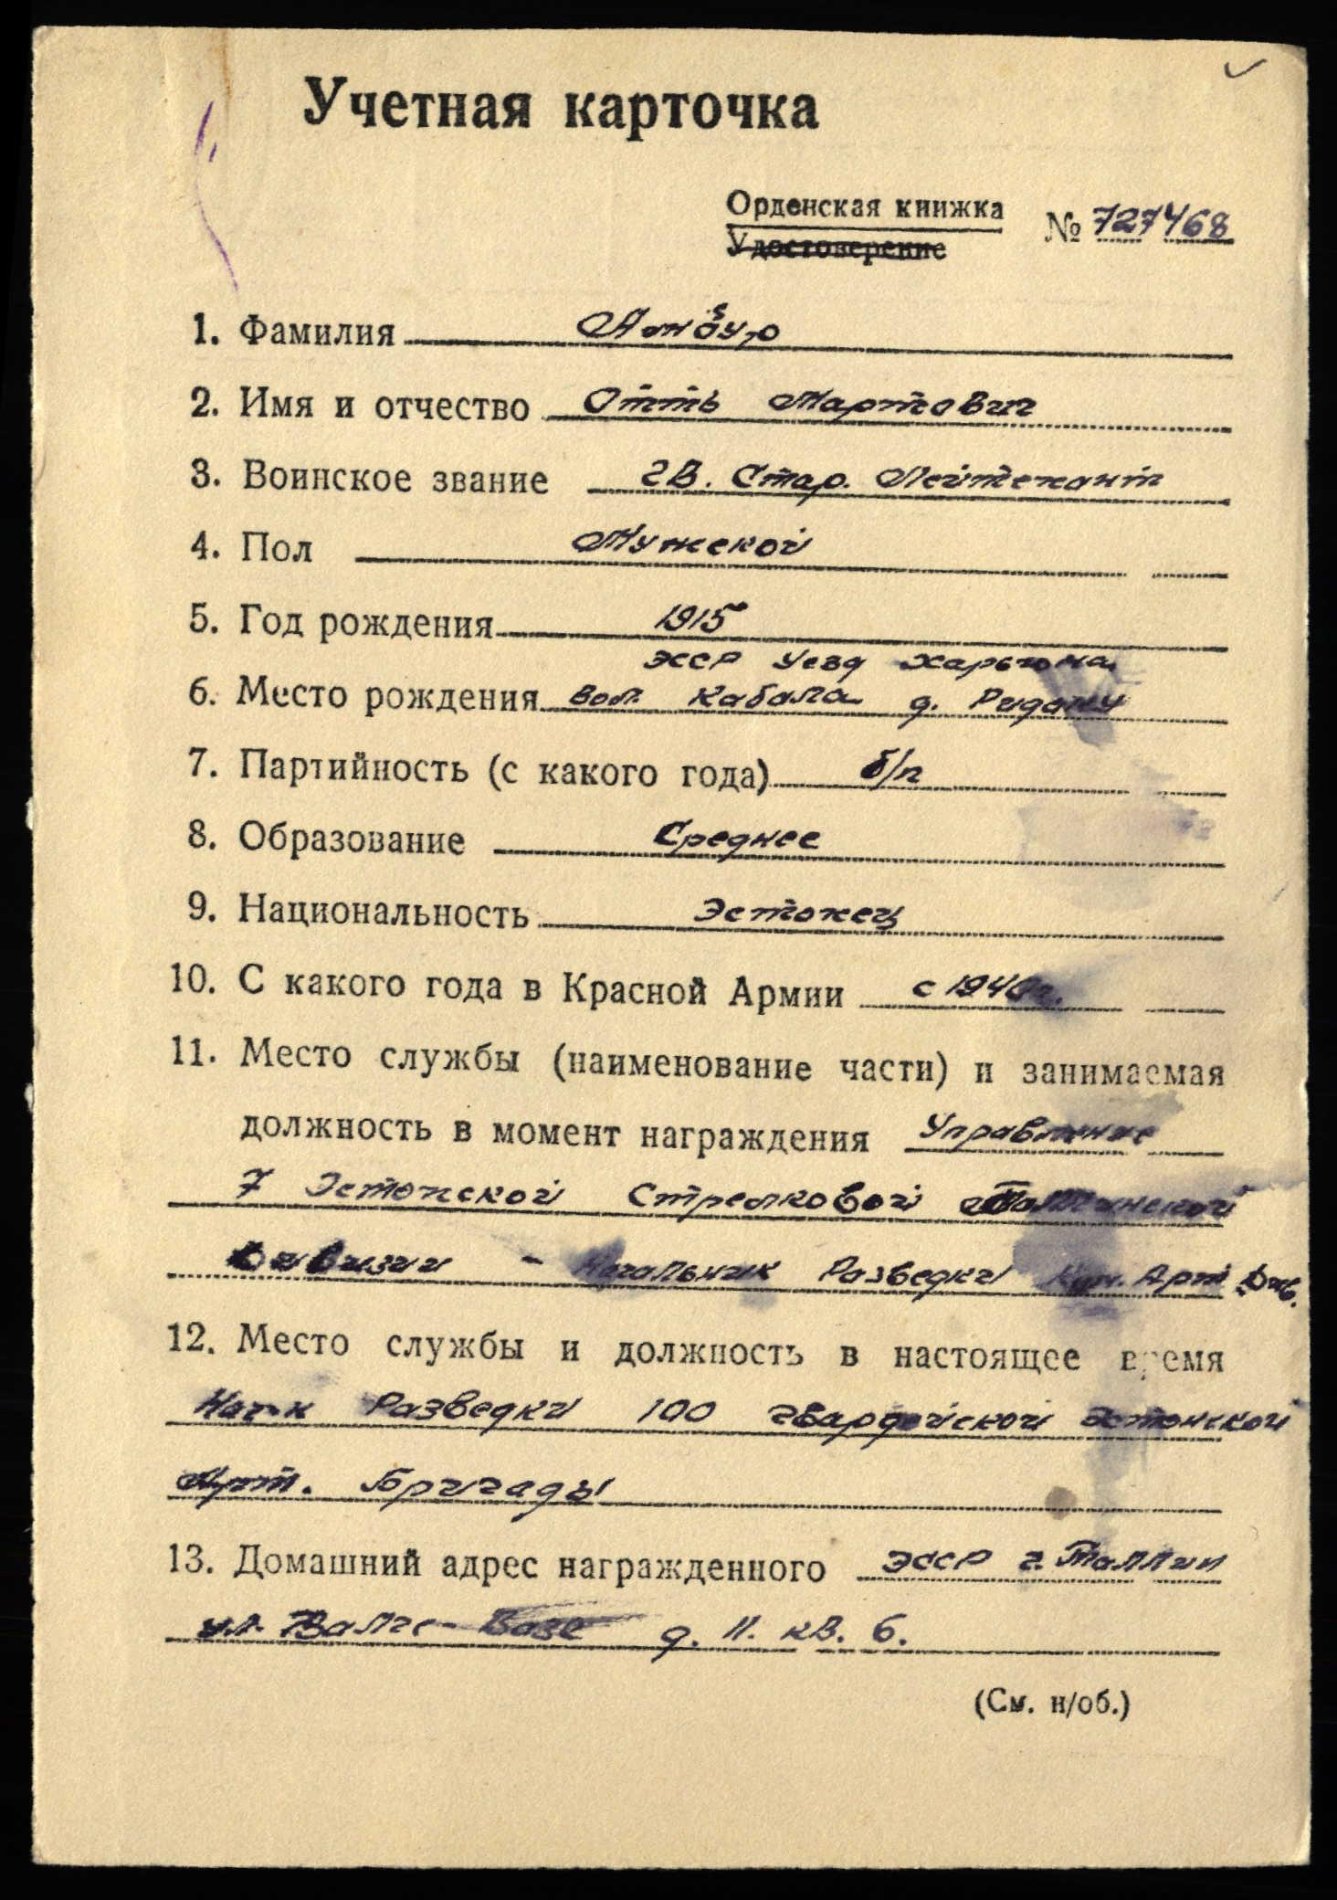 Учетная карточка
Орденская книжка
Удостоверение
№ 727468
1. Фамилия
2. Имя и отчество Отть Мартович
3. Воинское звание гв. Стар. Лейтенант
4. Пол Мужской
5. Год рождения 1915
ЭССР Уезд Харьюма,
6. Место рождения вол. Кабала д. Ридаку
7. Партийность (с какого года) б/п
8. Образование Среднее
9. Национальность Эстонец
10. С какого года в Красной Армии с 1940г.
11. Место службы (наименование части) и занимаемая
должность в момент награждения Управление
7 Эстонской Стрелковой Таллинской
Дивизии - Начальник Разведки Арт Див.
12. Место службы и должность в настоящее время
Нач-к Разведки 100 гвардейской Эстонской
Арт. Бригады
13. Домашний адрес награжденного ЭССР г. Таллин
ул. Валге-Вазе д. 11. кв. 6.
(См. н/об.)